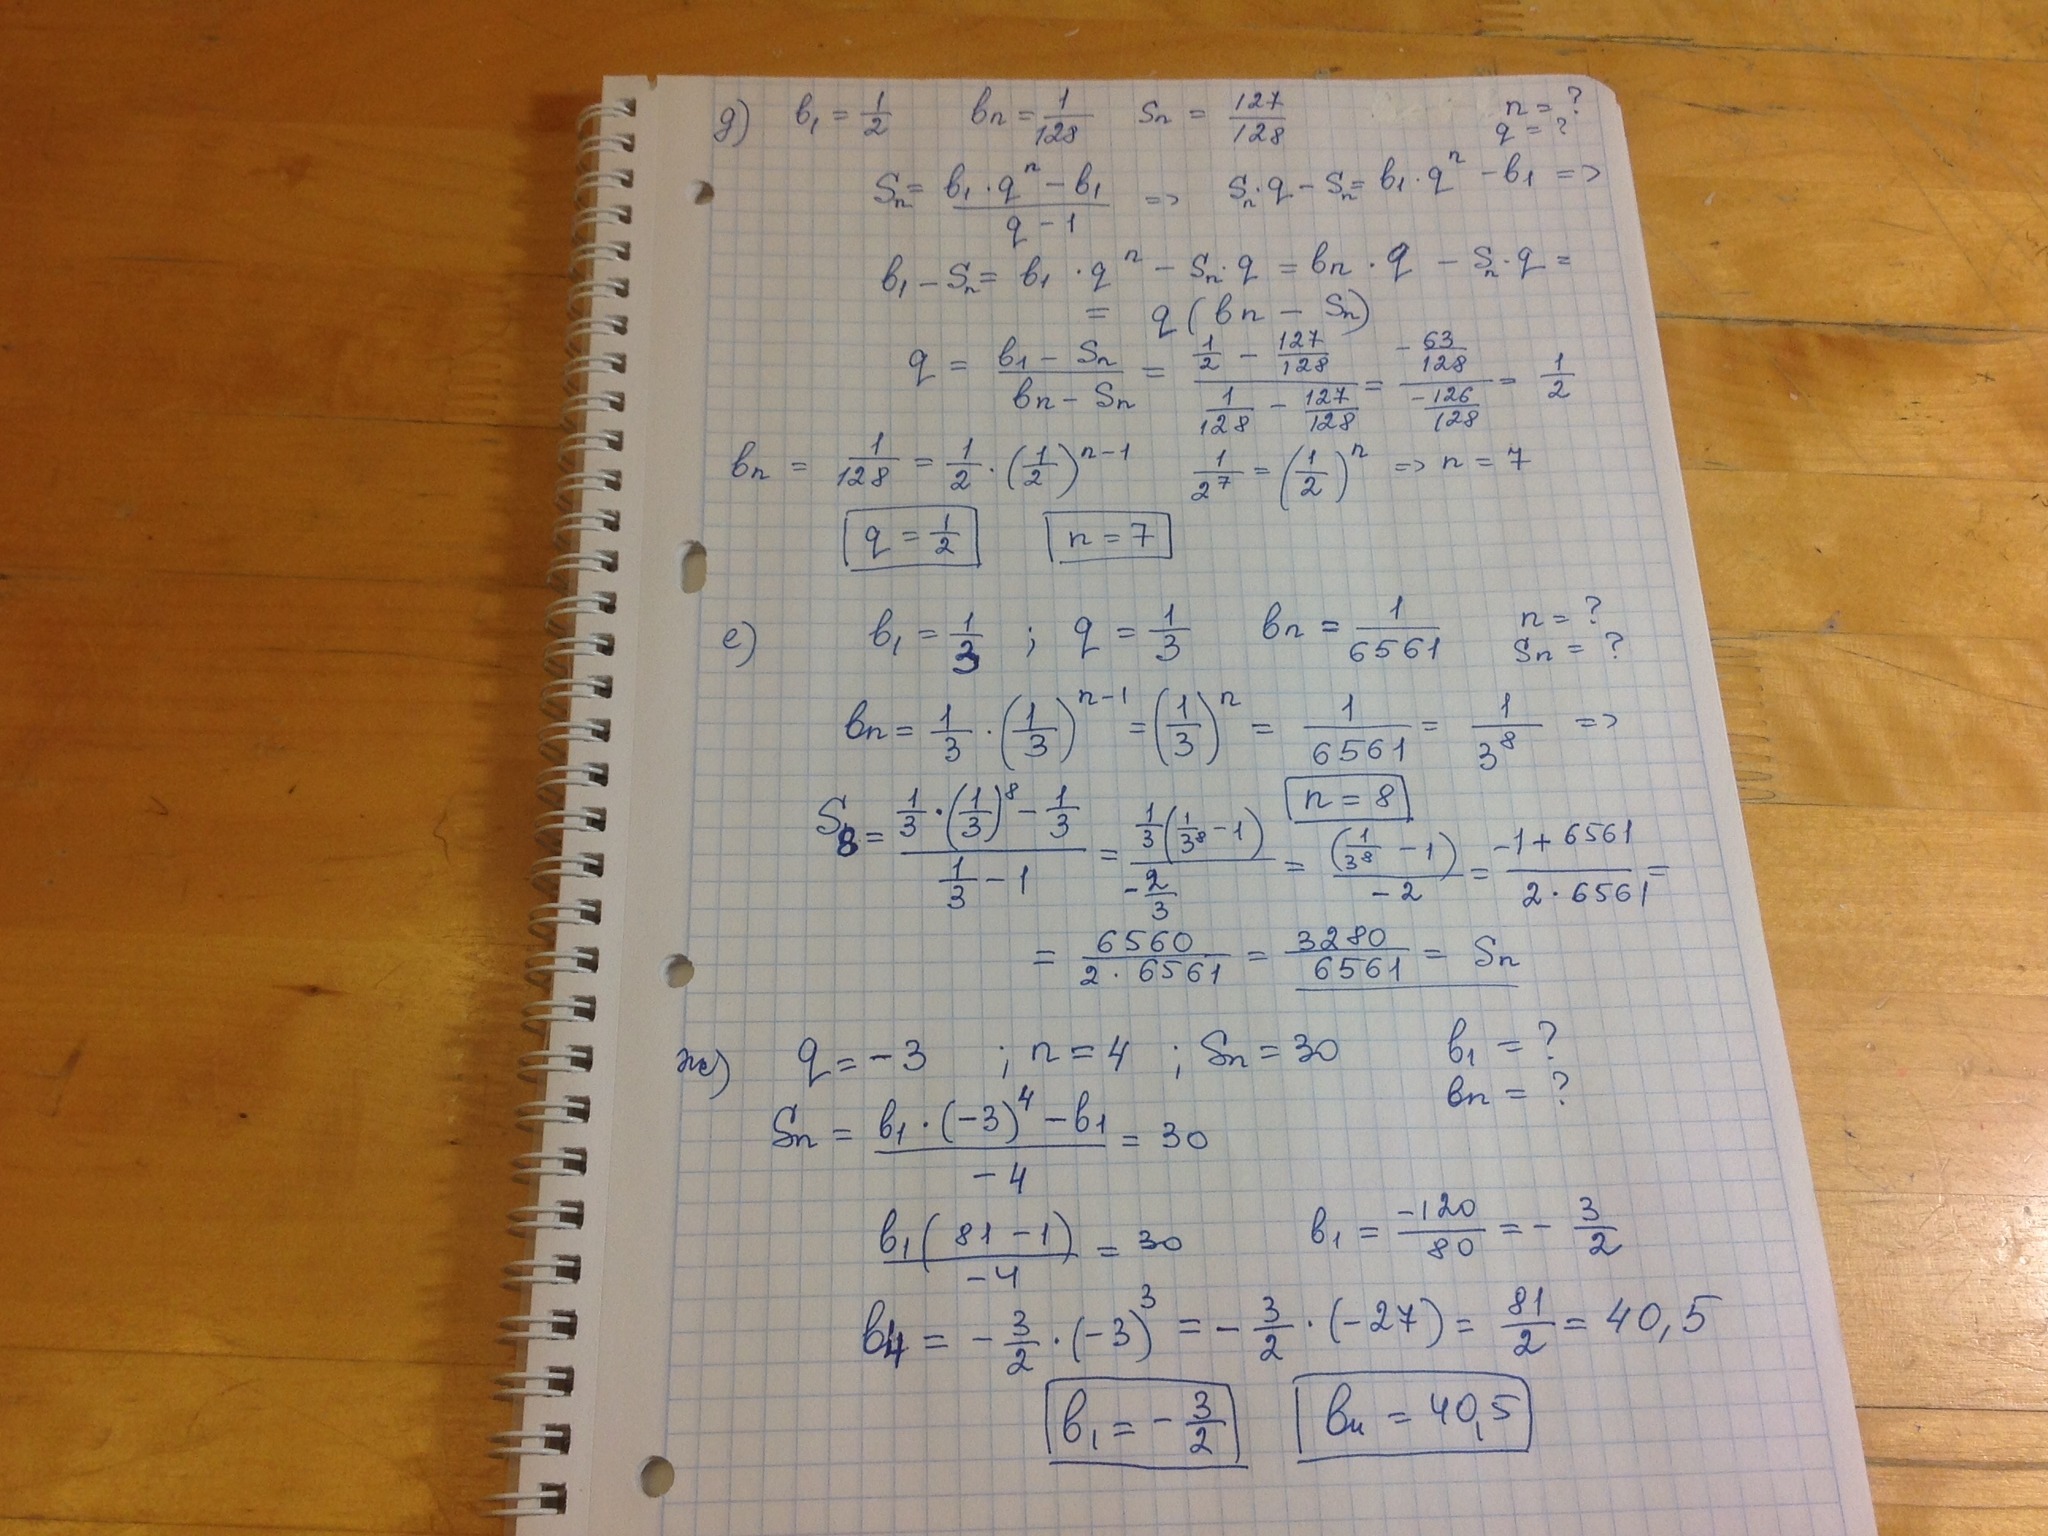 д) b₁ = 1/2 bn = 1/128 Sn = 127/128 n = ?
q = ?
Sn = (b₁ · qⁿ − b₁)/(q − 1) => Sn · q − Sn = b₁ · qⁿ − b₁ =>
b₁ − Sn = b₁ · qⁿ − Sn · q = bn · q − Sn · q =
= q (bn − Sn)
q = (b₁ − Sn)/(bn − Sn) = (1/2 − 127/128)/(1/128 − 127/128) = (−63/128)/(−126/128) = 1/2
bn = 1/128 = 1/2 · (1/2)ⁿ⁻¹ 1/2⁷ = (1/2)ⁿ => n = 7
q = 1/2 n = 7
е) b₁ = 1/3 ; q = 1/3 bn = 1/6561 n = ?
Sn = ?
bn = 1/3 · (1/3)ⁿ⁻¹ = (1/3)ⁿ = 1/6561 = 1/3⁸ =>
n = 8
S₈ = (1/3 · (1/3)⁸ − 1/3)/(1/3 − 1) = (1/3 (1/3⁸ − 1))/(−2/3) = (1/3⁸ − 1)/(−2) = (−1 + 6561)/(2 · 6561) =
= 6560/(2 · 6561) = 3280/6561 = Sn
ж) q = −3 ; n = 4 ; Sn = 30 b₁ = ?
bn = ?
Sn = (b₁ · (−3)⁴ − b₁)/(−4) = 30
b₁(81 − 1)/(−4) = 30 b₁ = −120/80 = − 3/2
b4 = − 3/2 · (−3)³ = − 3/2 · (−27) = 81/2 = 40,5
b₁ = − 3/2 bn = 40,5